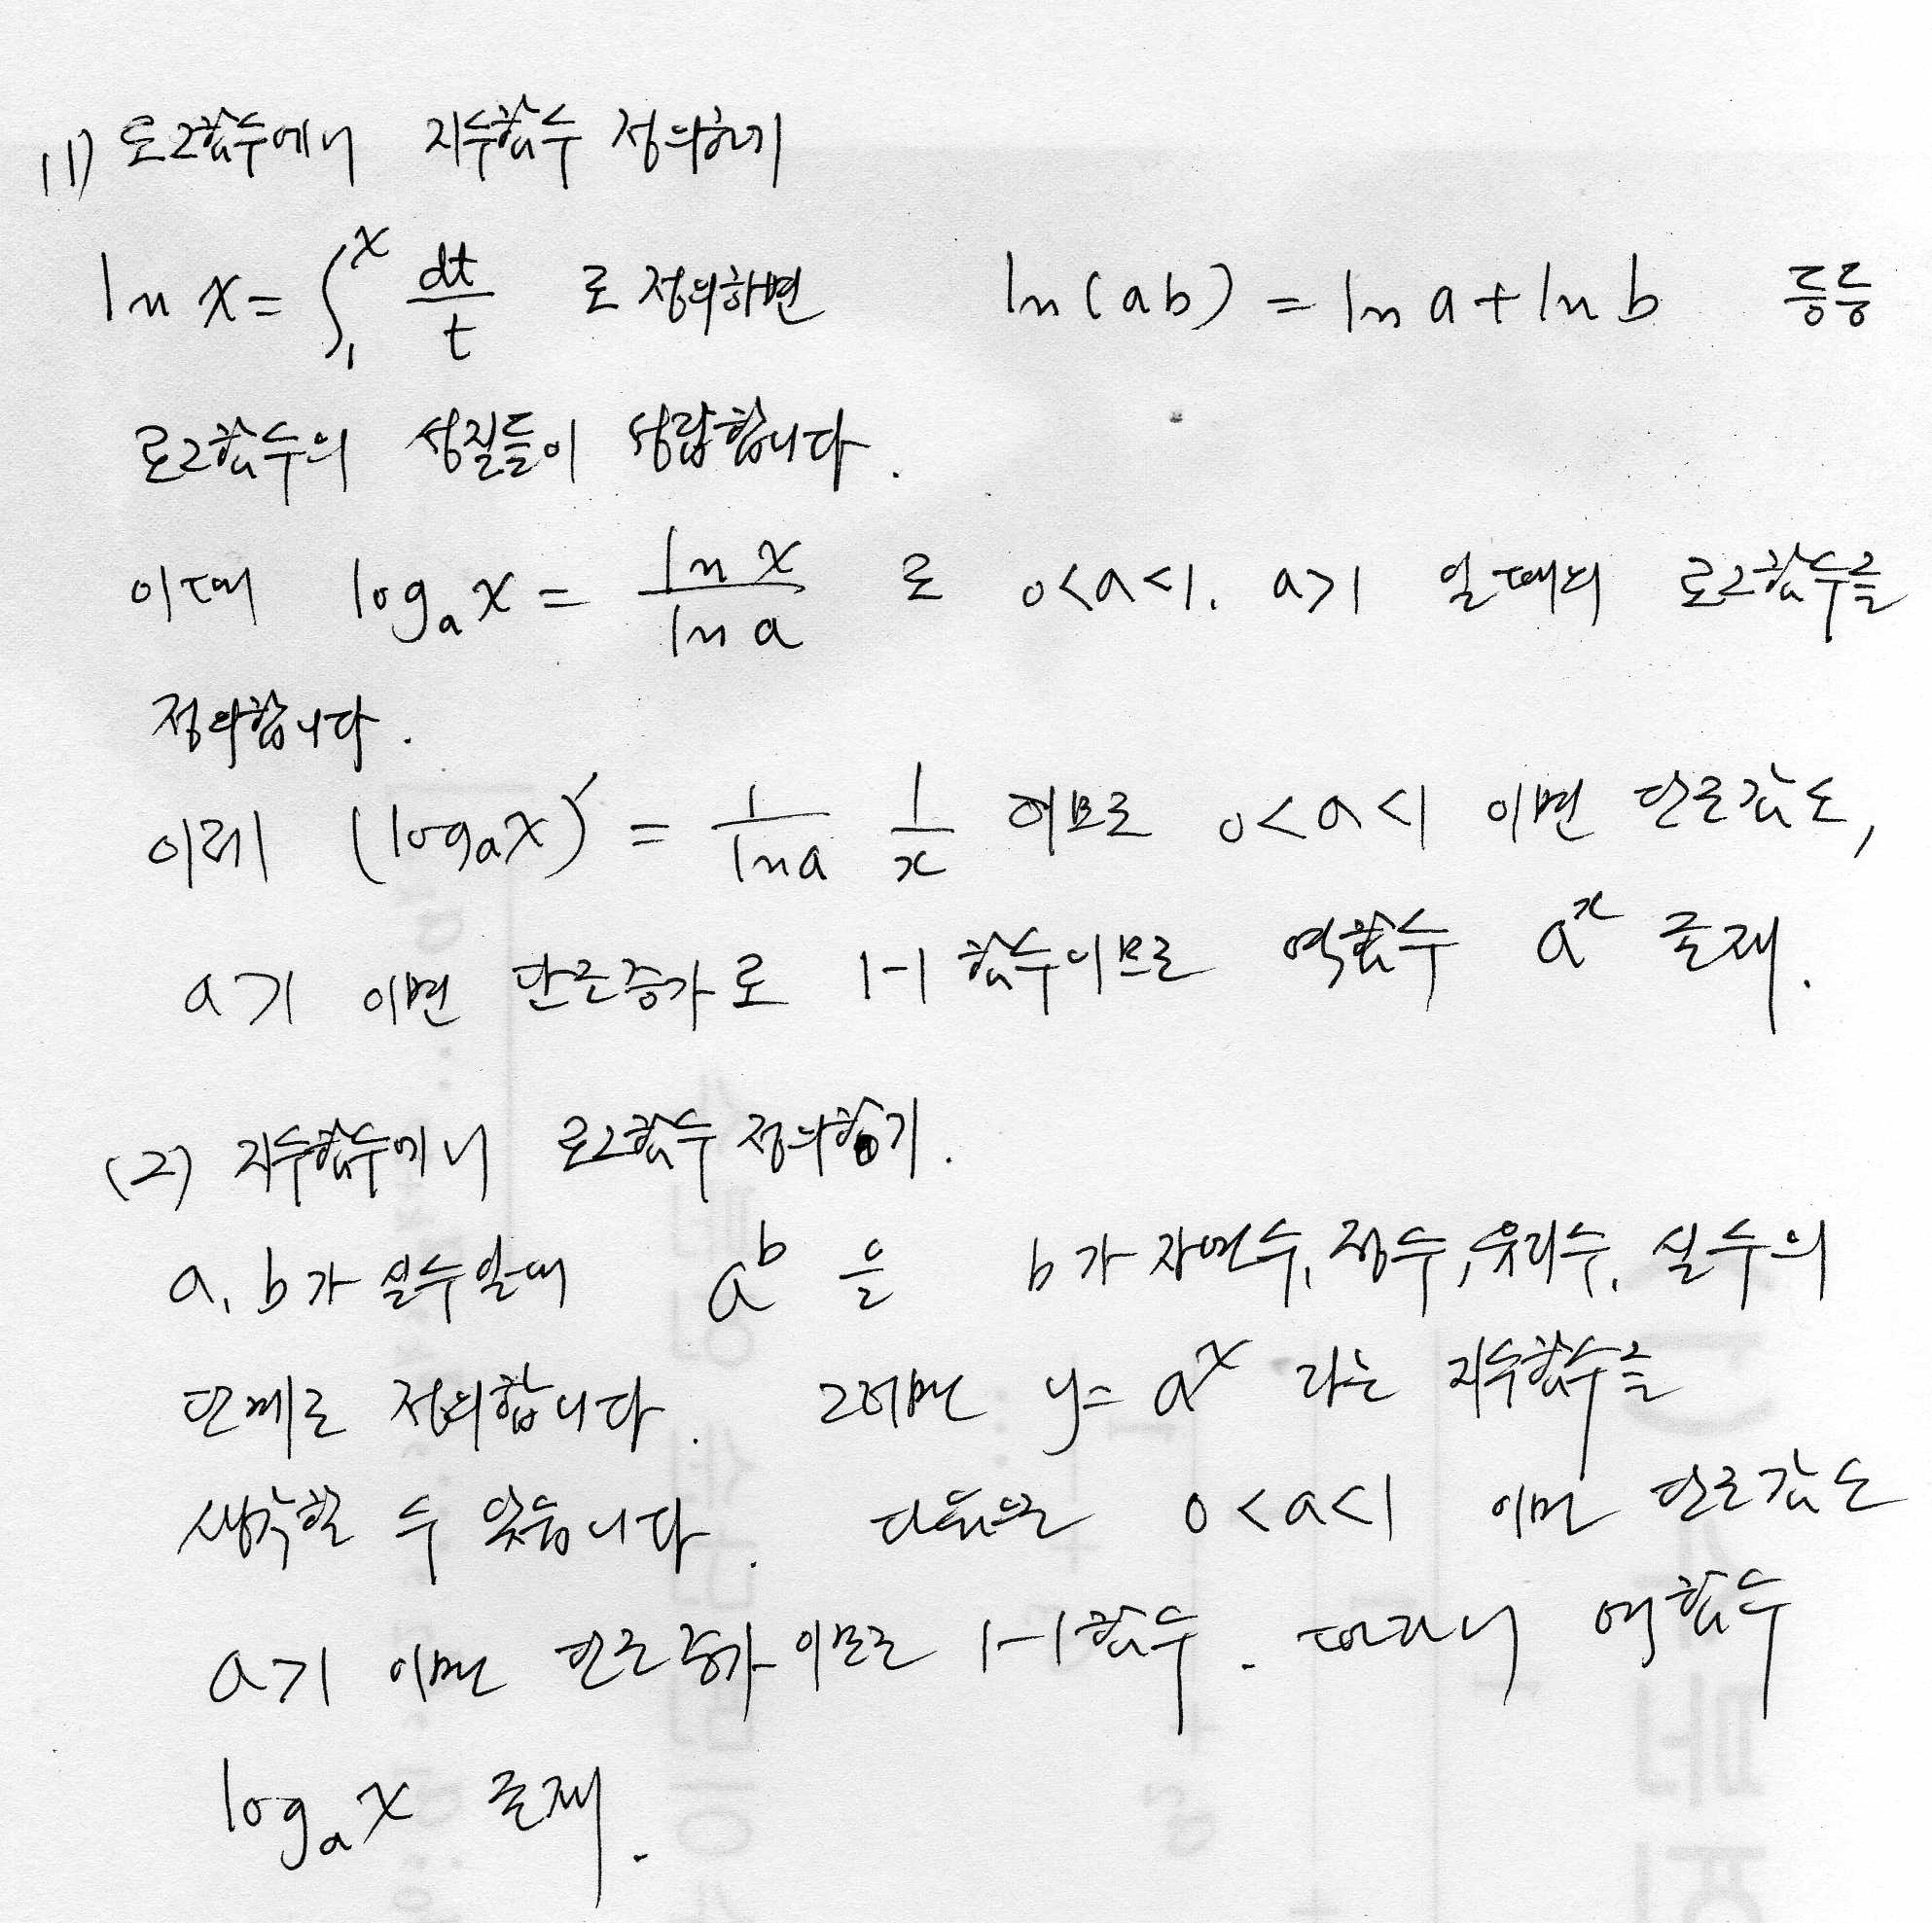 (1) 로그함수에서 지수함수 정의하기
ln x = ∫₁ˣ dt/t 로 정의하면 ln(ab) = ln a + ln b 등등
로그함수의 성질들이 성립합니다.
이때 logₐx = ln x / ln a 로 0<a<1, a>1 일때의 로그함수를
정의합니다.
이제 (logₐx)′ = 1/ln a 1/x 이므로 0<a<1 이면 단조감소,
a>1 이면 단조증가로 1-1 함수이므로 역함수 aˣ 존재.
(2) 지수함수에서 로그함수 정의하기.
a, b가 실수일때 aᵇ 을 b가 자연수, 정수, 유리수, 실수의
단계로 정의합니다. 그러면 y = aˣ 라는 지수함수를
생각할 수 있습니다. 0<a<1 이면 단조감소
a>1 이면 단조증가 이므로 1-1함수. 따라서 역함수
logₐx 존재.